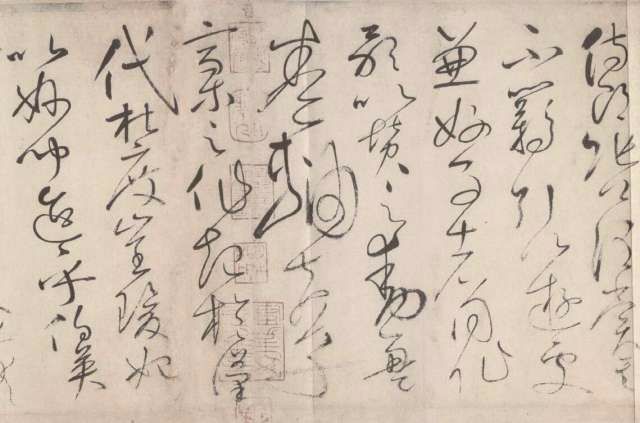 侍郎張公謂賞其
不羈引以遊處
兼好事者同作
歌以贊之動盈
卷軸夫草
稾之作起於漢
代杜度崔瑗始
以妙聞迨乎伯英